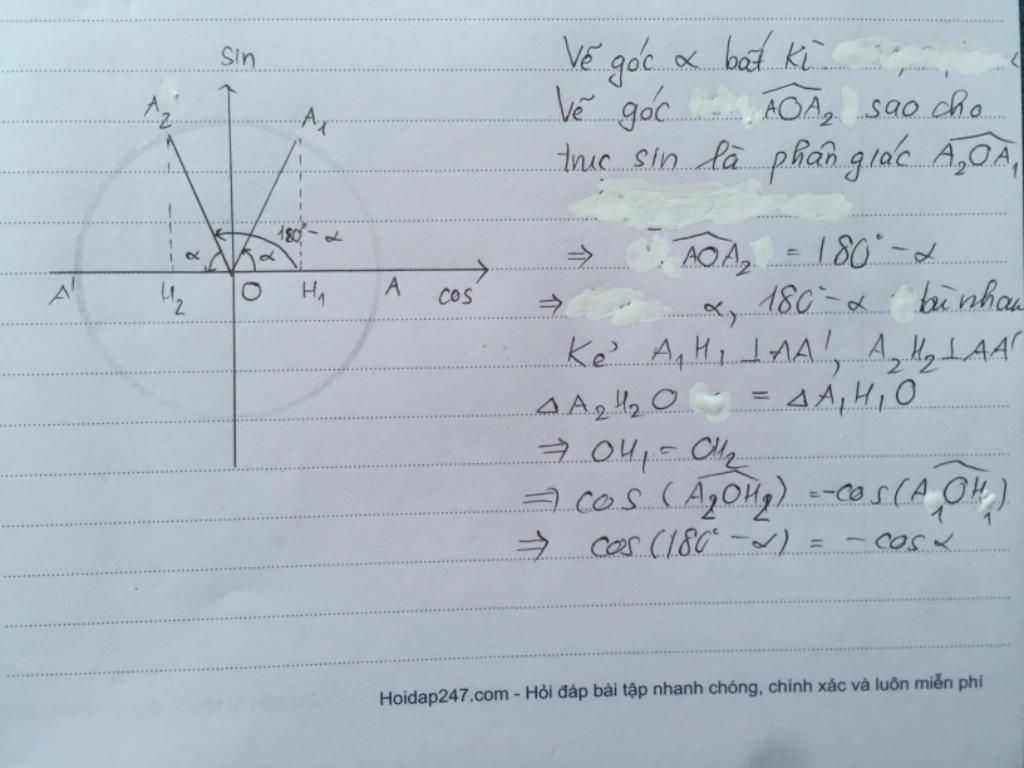 Sin
A₂
A₁
180° - α
α
α
A'
H₂
O
H₁
A
cos
Vẽ góc α bất kì
Vẽ góc AOA₂ sao cho
trục sin là phân giác A₂OA₁
⇒ AOA₂ = 180° - α
⇒ α, 180° - α bù nhau
Kẻ A₁H₁ ⊥ AA', A₂H₂ ⊥ AA'
Δ A₂H₂O = Δ A₁H₁O
⇒ OH₁ = OH₂
⇒ cos (A₂OH₂) = -cos (A₁OH₁)
⇒ cos (180° - α) = - cos α
Hoidap247.com - Hỏi đáp bài tập nhanh chóng, chính xác và luôn miễn phí